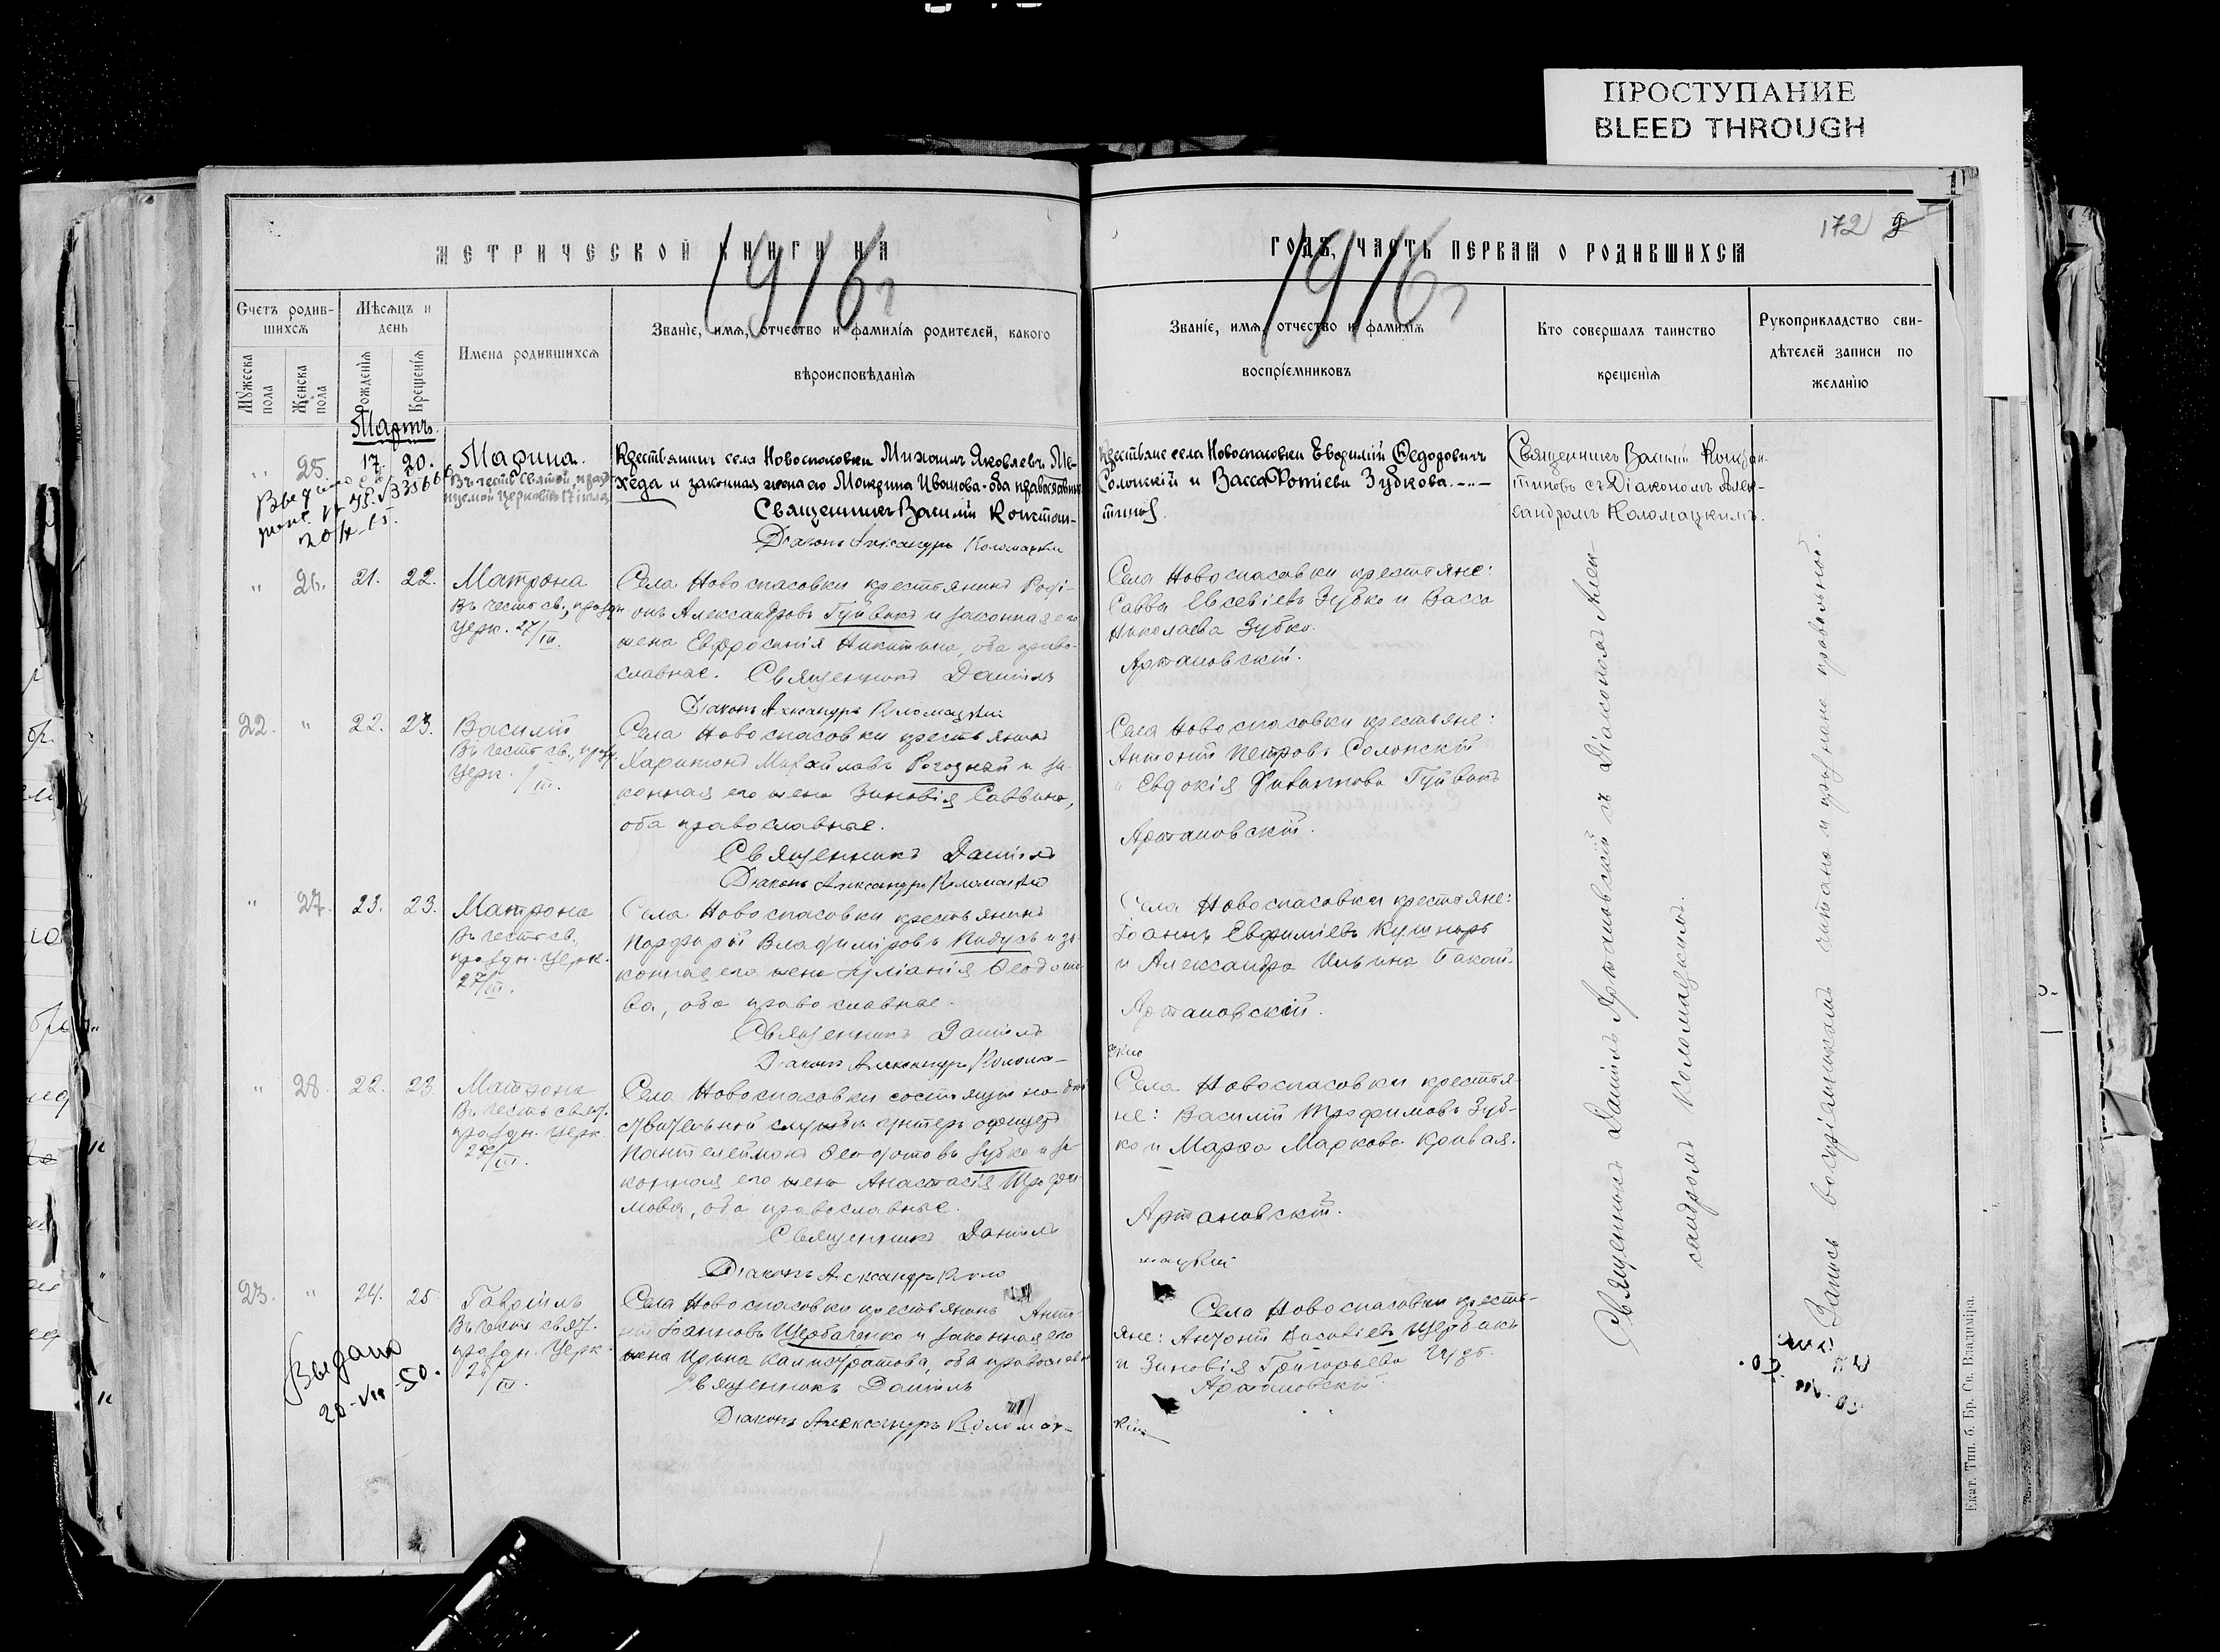 ПРОСТУПАНИЕ
BLEED THROUGH
172
МЕТРИЧЕСКОЙ КНИГИ НА 1916 г
ГОДЪ, ЧАСТЬ ПЕРВАЯ О РОДИВШИХСЯ
1916 г
Счетъ родив-
шихся
Мужеска
пола
Женска
пола
Мѣсяцъ и
день
Рожденія
Крещенія
Имена родившихся
Званіе, имя, отчество и фамилія родителей, какого
вѣроисповѣданія
Званіе, имя, отчество и фамилія
воспріемниковъ
Кто совершалъ таинство
крещенія
Рукоприкладство сви-
дѣтелей записи по
желанію
Мартъ.
" 25. 17. 20.
Марина.
Въ честь святой, празд-
нуемой Церковію 17 іюля
20/X-55.
Крестьянинъ села Новоспасовки Михаилъ Яковлевъ Ме-
хеда и законная жена его Мокрина Иванова - оба православные
Священникъ Василій Констан-
Діаконъ Александръ Коломацкій
Крестьяне села Новоспасовки Евфимій Федоровичъ
Солонскій и Васса Фотіева Зубкова.
тиновъ
Священникъ Василій Констан-
тиновъ съ Діакономъ Алек-
сандромъ Коломацкимъ.
" 26. 21. 22.
Матрона
Въ честь св., праздн.
Церк. 27/III.
Села Новоспасовки крестьянинъ Роді-
онъ Александровъ Гуйвикъ и законная его
жена Евфросинія Никитина, оба право-
славные. Священникъ Даніилъ
Діаконъ Александръ Коломацкій
Села Новоспасовки крестьяне:
Савва Евсевіевъ Зубко и Васса
Николаева Зубко.
Артановскій.
22. " 22. 23.
Василій
Въ честь св., праздн.
Церк.
Села Новоспасовки крестьянинъ
Харитонъ Михайловъ Рогозный и за-
конная его жена Зиновія Саввина,
оба православные.
Священникъ Даніилъ
Діаконъ Александръ Коломацкій
Села Новоспасовки крестьяне:
Антоній Петровъ Солонскій
и Евдокія Гуйвикъ
Артановскій.
" 27. 23. 23.
Матрона
Въ честь св.,
праздн. Церк.
27/III.
Села Новоспасовки крестьянинъ
Порфирій Владиміровъ и за-
конная его жена Іуліанія Феодото-
ва, оба православные.
Священникъ Даніилъ
Діаконъ Александръ Колома-
Села Новоспасовки крестьяне:
Іоаннъ Евфиміевъ Кушнаръ
и Александра Ильина
Артановскій.
цкій
" 28. 22. 23.
Матрона
Въ честь свят.
праздн. Церк.
27/III.
Села Новоспасовки состоящій на дѣй-
ствительной службѣ унтеръ офицеръ
Пантелеймонъ Феодотовъ Зубко и за-
конная его жена Анастасія Трофи-
мова, оба православные.
Священникъ Даніилъ
Діаконъ Александръ Коло
Села Новоспасовки крестья-
не: Василій Трофимовъ Зуб-
ко и Марфа Маркова Кривая.
Артановскій.
мацкій
23. " 24. 25.
Гавріилъ
Въ честь свят.
праздн. Церк.
26/III.
Выдано
20-VII-50.
Села Новоспасовки крестьянинъ Анто-
ній Іоанновъ Щербаченко и законная его
жена Ирина Калистратова, оба православные
Священникъ Даніилъ
Діаконъ Александръ Коломац-
Села Новоспасовки крестья-
яне: Антоній Васильевъ Щербакъ
и Зиновія Григорьева
Артановскій
кій
Священникъ Даніилъ Артановскій съ Діакономъ Алек-
сандромъ Коломацкимъ.
Запись воспріемникамъ читана и признана правильной.
Екат. Тип. б. Бр. Св. Владимра.